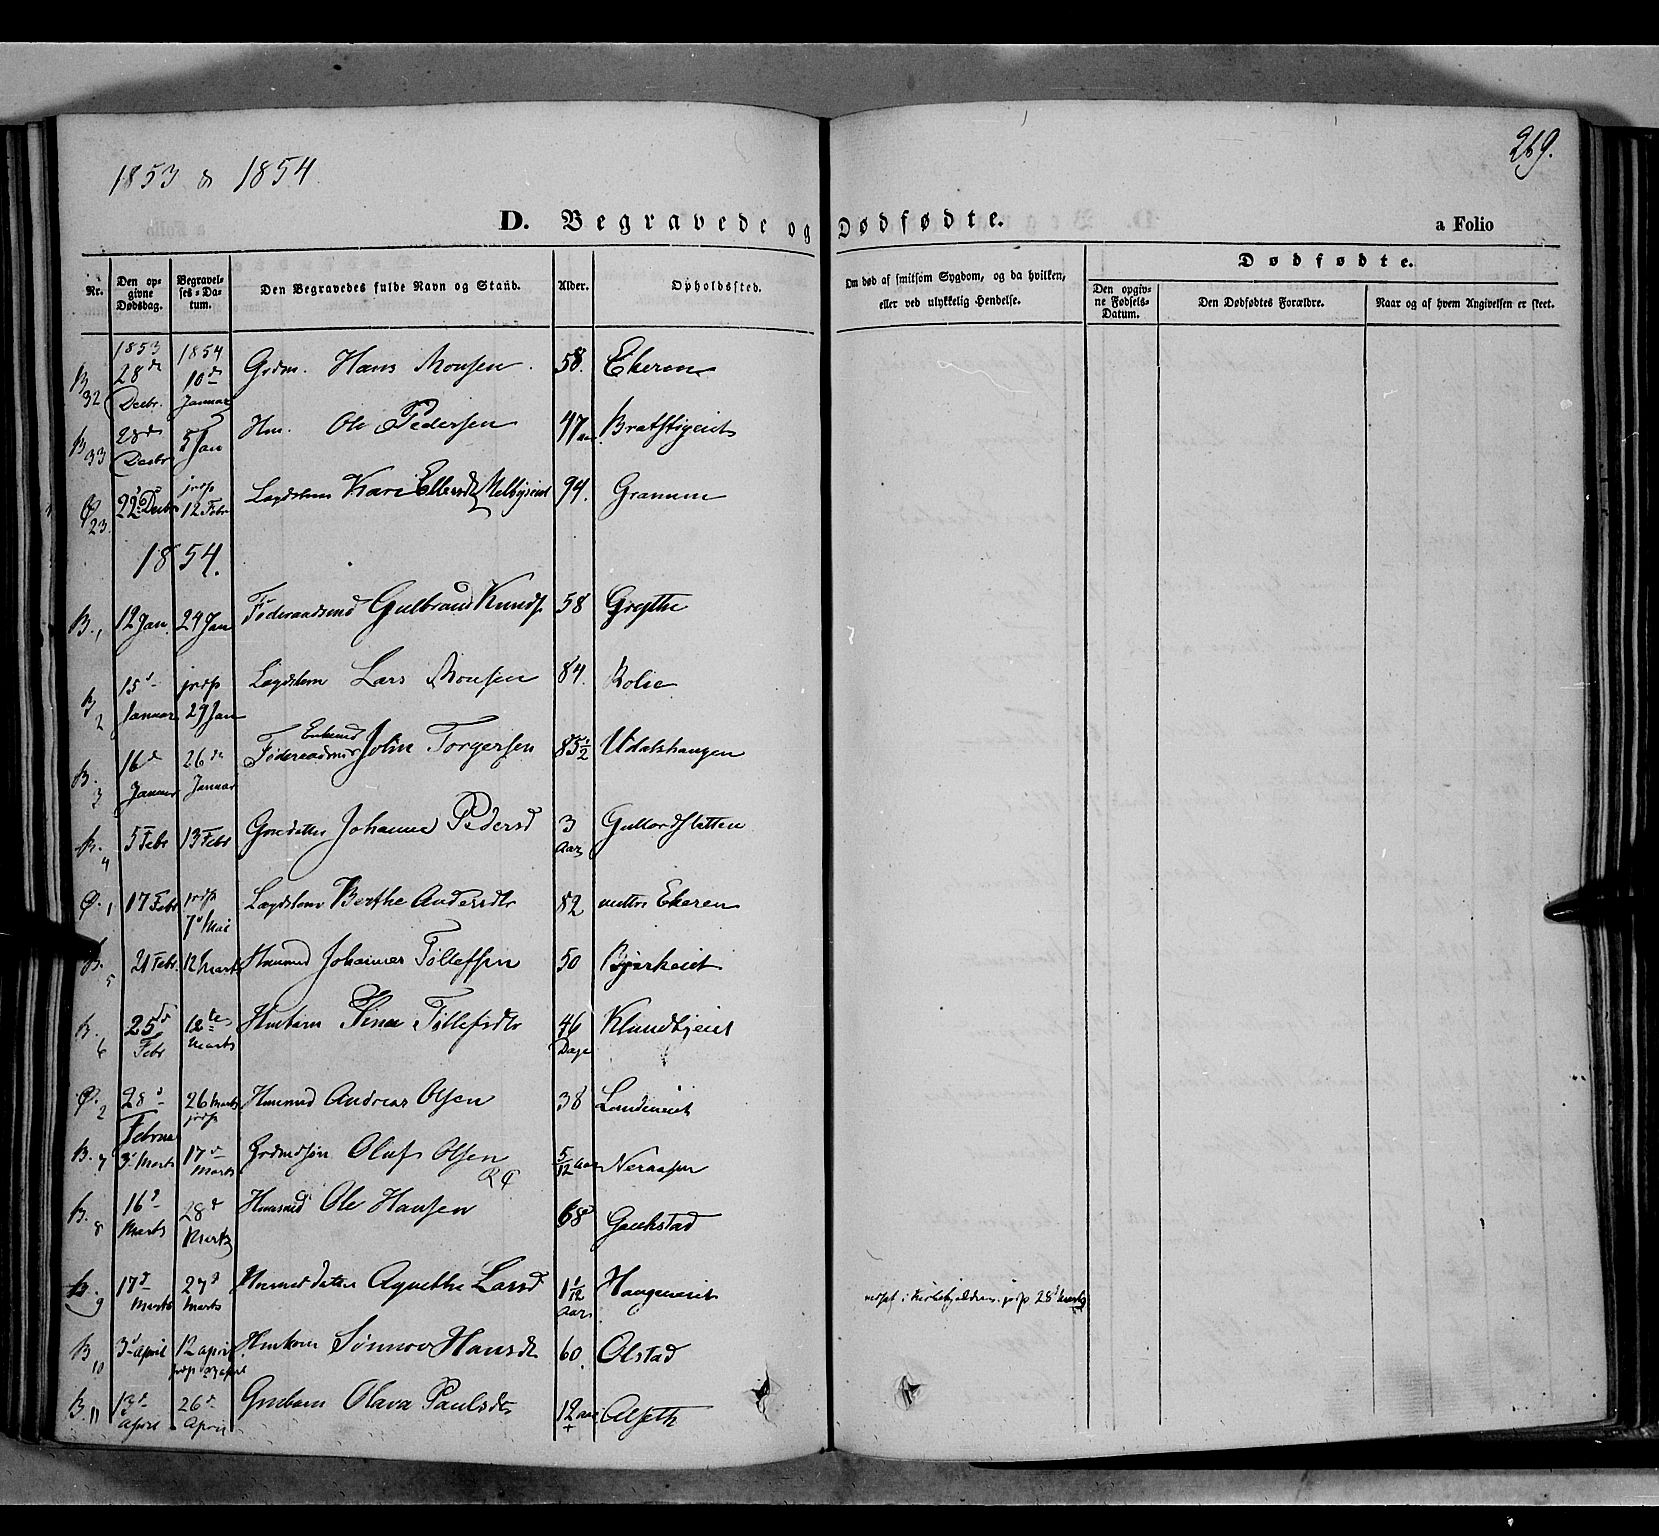 269.
1853 & 1854
D. Begravede og Dødfødte. a Folio
Nr. Den opgivne Dødsdag. Begravelses-Datum. Den Begravedes fulde Navn og Stand. Alder. Opholdssted. Om død af smitsom Sygdom, og da hvilken, eller ved ulykkelig Hendelse. Dødfødte.
Den opgivne Fødsels-Datum. Den Dødfødtes Forældre. Naar og af hvem Angivelsen er skeet.
1853 1854
B 32 28de Decbr. 10de Januar Grdm. Hans Monsen 58. Ekeren
B 33 28de Decbr 5 Jan Hm. Ole Pedersen 47 Aar Bratstigeiet
Ø 23. 22 Decbr jrdp 12 Febr Lægdslem Kari Ellensd 94. Granum
1854.
B. 1 12 Jan. 24 Jan Føderaadsmd Gulbrand Knuds. 58 Grythe
B 2 15d Januar jrdp 29 Jan Lægdslem Lars Monsen 84. Kolie
B. 3 16d Januar 26de Januar Enkemd Føderaadsmd John Torgersen 85 1/2 Udalshaugen
B. 4 5 Febr 13 Febr Johanne Pedersd 3 Aar
Ø. 1 17 Febr jrdp 7d Mai Lægdslem Berthe Andersdtr 82 nedtre Ekeren
B. 5 21 Febr 12 Marts Huusmd Johannes Tollefsen 50 Bjerkeiet
B. 6 25de Febr 12te Marts Hmbarn Stina Tollefsdtr 46 Dage Klundbyeiet
Ø. 2 28d Februar 26 Marts jrdp Huusmd Andreas Olsen 38 Landeiet
B. 7 3d Marts 17d Marts Grdmdsøn Oluf Olsen 5/12 Aar Neraasen
B. 8 16d Marts 28d Marts Huusmd Ole Hansen 68 Gaukstad
B. 9 17d Marts 27d Marts Husmdsdatter Agnethe Larsd 1 1/12 Aar Haugeneiet nedsat i jrdp 28d Marts
B 10 3d April 12 April jrdp 23 April Hmkone Sønnov Hansdtr 60. Olstad
B. 11 13d April 26d April Gmbarn Olava Paulsdtr 12 Aar + Alseth